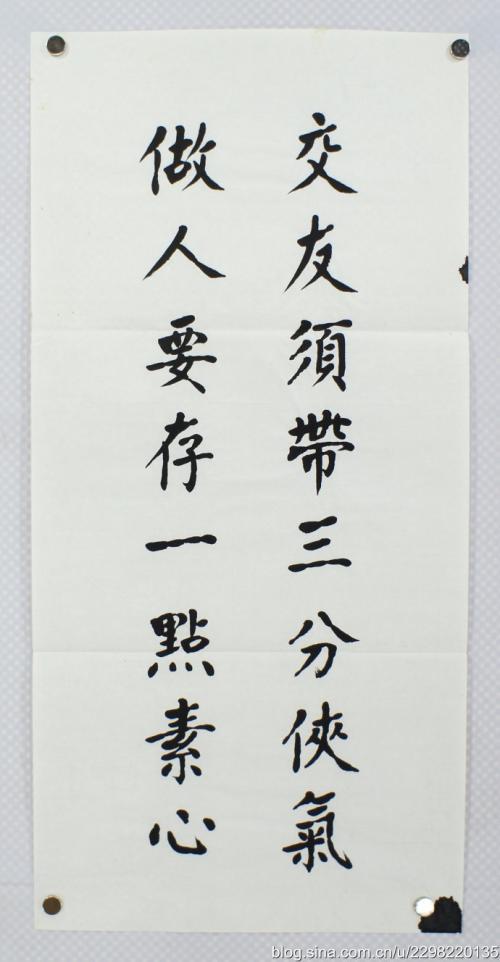 交友須帶三分俠氣
做人要存一點素心
blog.sina.com.cn/u/2298220135